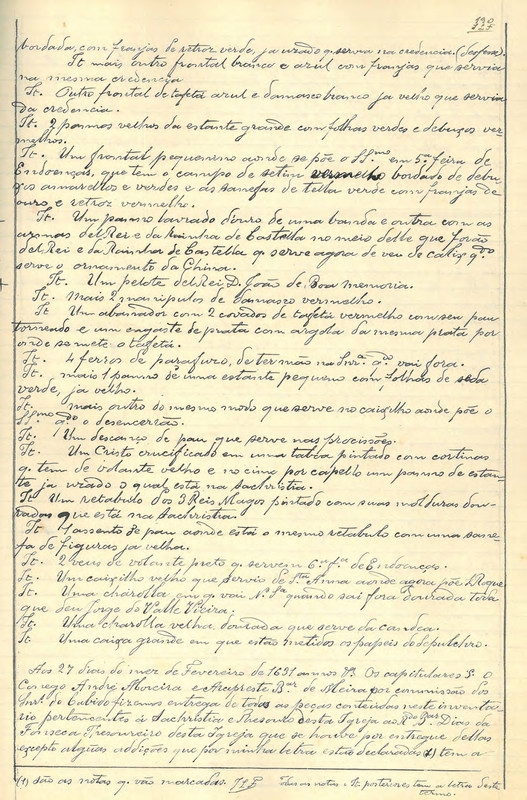 130
bordada, com franjas de retroz verde, ja uzado q. servia na credencia. (desfesse)
It mais outro frontal branco e azul com franjas que servia
na mesma credencia
It. Outro frontal de tafeta azul e damasco branco ja velho que servia
da credencia.
It. 2 pannos velhos da estante grande com folhas verdes e debuços ver
melhos.
It. Um frontal pequenino aonde se põe o SSmo em 5ª feira de
Endoenças, que tem o campo de setim vermelho bordado de debu-
ços amarellos e verdes e as sanefas de tella verde com franjas de
ouro, e retroz vermelho.
It. Um panno lavrado d'ouro de uma banda e outra com as
armas del Rei e da Rainha de Castella no meio delle que forão
del Rei e da Rainha de Castella q. serve agora de veu de calix q.do
serve o ornamento da China.
It. Um pelote del Rei D. João de Boa memoria.
It. Mais 2 manipulos de damasco vermelho.
It Um abanador com 2 covados de tafetá vermelho com seu pau
torneado e um engaste de prata com argola da mesma prata por
onde se mete o tafetá.
It. 4 ferros de parafuzo, de termão na Inv.ª q.do vai fora.
It. mais 1 panno de uma estante pequeno com folhas de seda
verde, ja velho.
It. mais outro do mesmo modo que serve no caixilho aonde põe o
Smo q.do o desencerrão.
It. Um descanço de pau que serve nas procissões.
It. Um Cristo crucificado em uma taboa pintado com cortinas
q. tem de volante velho e no cimo por capello um panno de estan-
te ja uzado o qual está na sachristia.
It Um retabulo dos 3 Reis Magos pintado com suas molduras dou-
radas que está na sachristia.
It 1 assento de pau aonde está o mesmo retabulo com uma sane
fa de figuras ja velha.
It. 2 veus de volante preto q. servem 6.ª f.ª de Endoenças.
It. Um caixilho velho que servio de Sta Anna aonde agora põe
It. Uma charolla em q. vai N. Sª quando sai fora dourada toda
que deu Jorge do Valle Vieira.
It. Uma charolla velha, dourada que serve da candea.
It. Uma caixa grande em que estão metidos os papeis do Sepulchro.
Aos 27 dias do mez de Fevereiro de 1631 annos Os capitulares o
Conego André Moreira e Arcipreste B.ar de Meira por commissão dos
Snrs do Cabido fizemos entrega de todas as peças contendas neste inventa
rio pertencentes á Sachristia e Thesouro desta Igreja ao Rdo Gar Dias da
Fonseca Thesoureiro desta Igreja que se houve por entregue dellas
excepto algūas addições que por minha letra estão declaradas (1) tem a
(1) São as notas q. vão marcadas. Estas notas e It. posteriores tem a letra deste
termo.